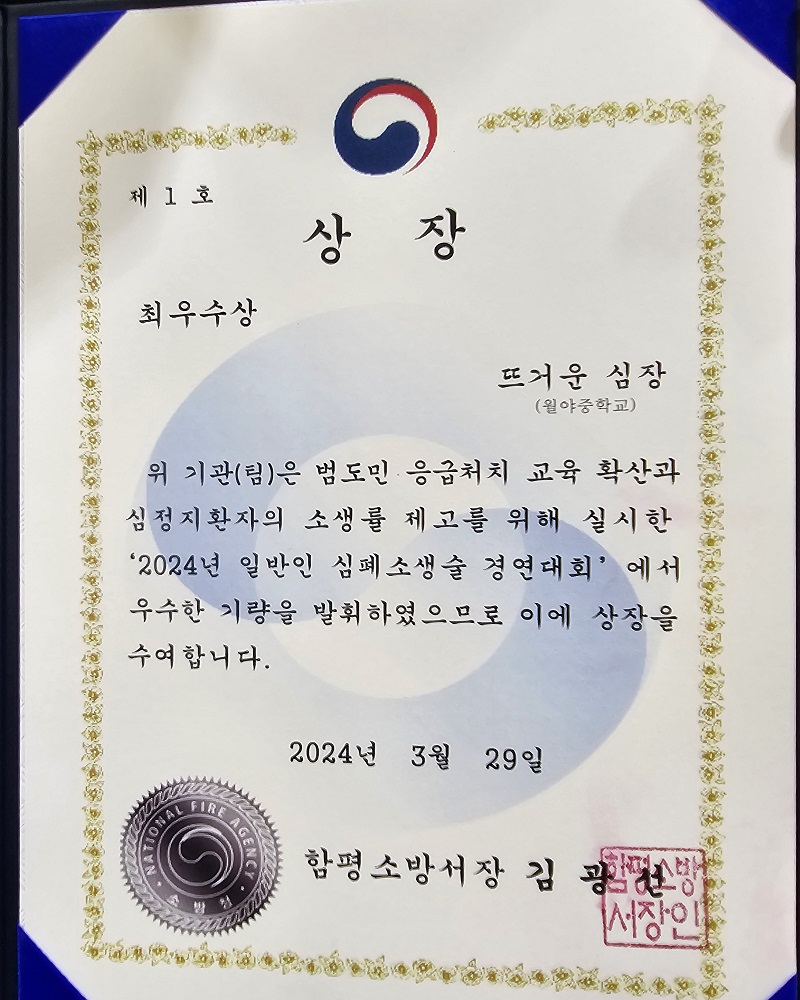 제 1 호
상 장
최우수상
뜨거운 심장
(월야중학교)
위 기관(팀)은 범도민 응급처치 교육 확산과
심정지환자의 소생률 제고를 위해 실시한
‘2024년 일반인 심폐소생술 경연대회’ 에서
우수한 기량을 발휘하였으므로 이에 상장을
수여합니다.
2024년 3월 29일
NATIONAL FIRE AGENCY
소방청
함평소방서장 김 광 선
함평소방
서장인